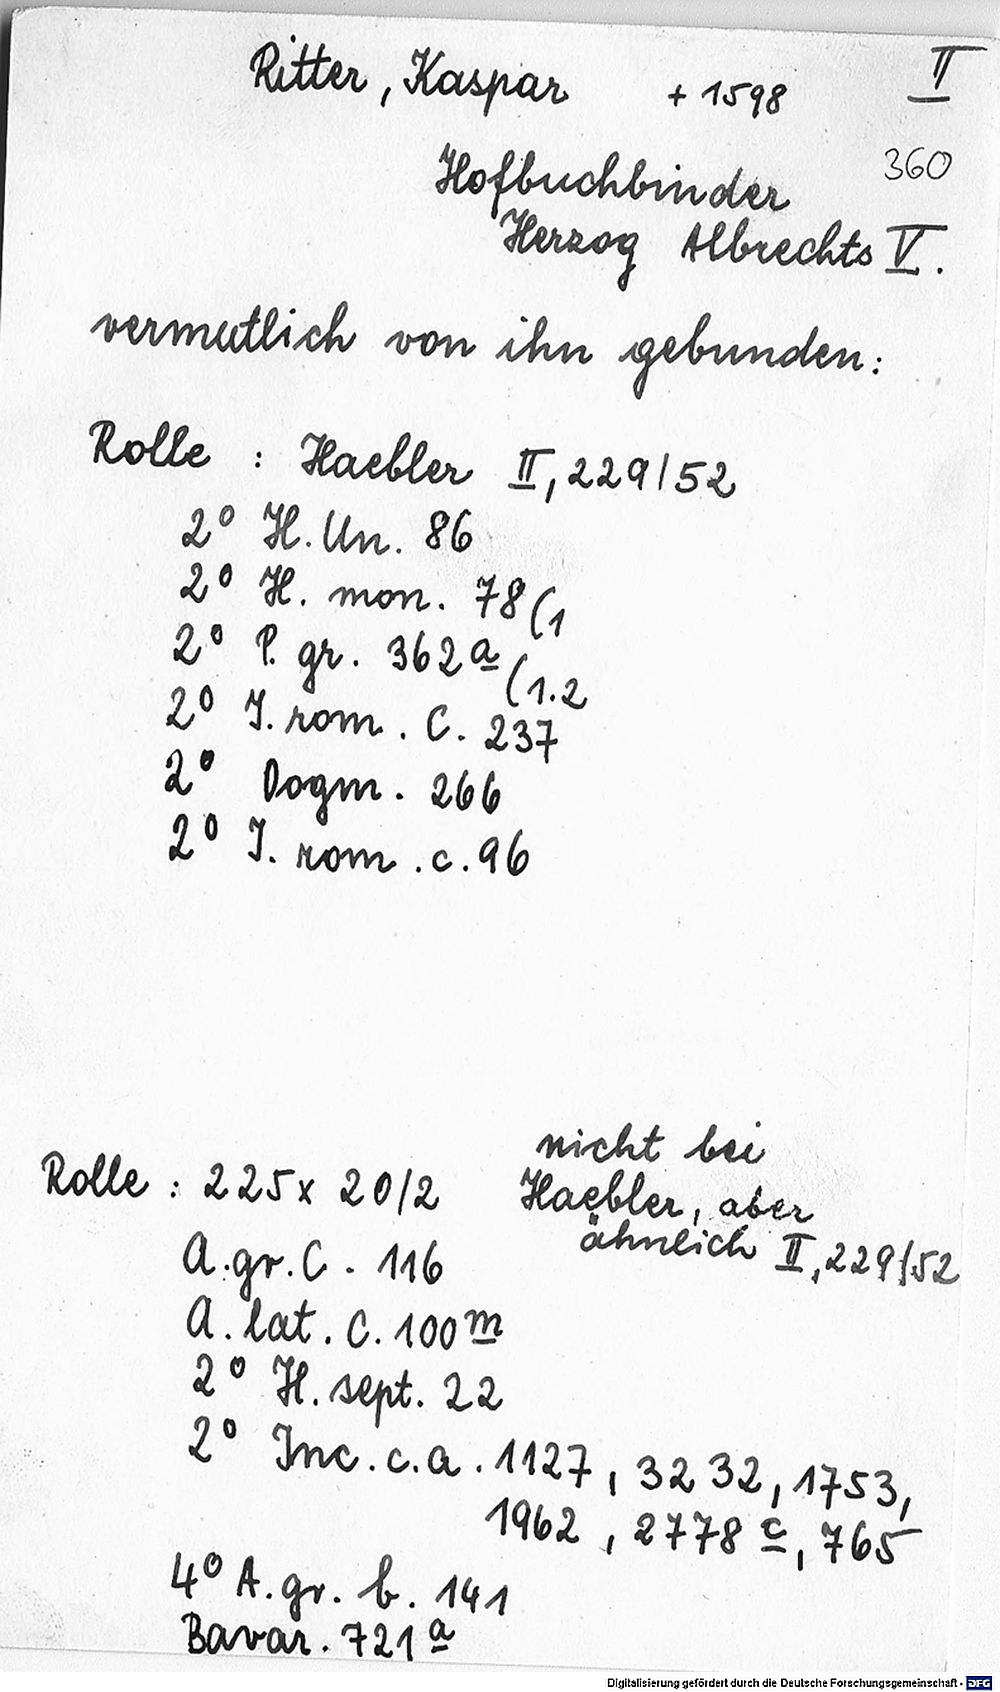 Ritter, Kaspar + 1598 II
360
Hofbuchbinder
Herzog Albrechts V.
vermutlich von ihn gebunden:
Rolle : Haebler II, 229/52
2° H. Un. 86
2° H. mon. 78 (1
2° P. gr. 362 a (1.2
2° J. rom. C. 237
2° Dogm. 266
2° J. rom. c. 96
Rolle : 225 x 20/2 nicht bei
Haebler, aber
ähnlich II, 229/52
A. gr. C. 116
A. lat. C. 100 m
2° H. sept. 22
2° Inc. c. a. 1127, 3232, 1753,
1962, 2778 c, 765
4° A. gr. b. 141
Bavar. 721 a
Digitalisierung gefördert durch die Deutsche Forschungsgemeinschaft - DFG